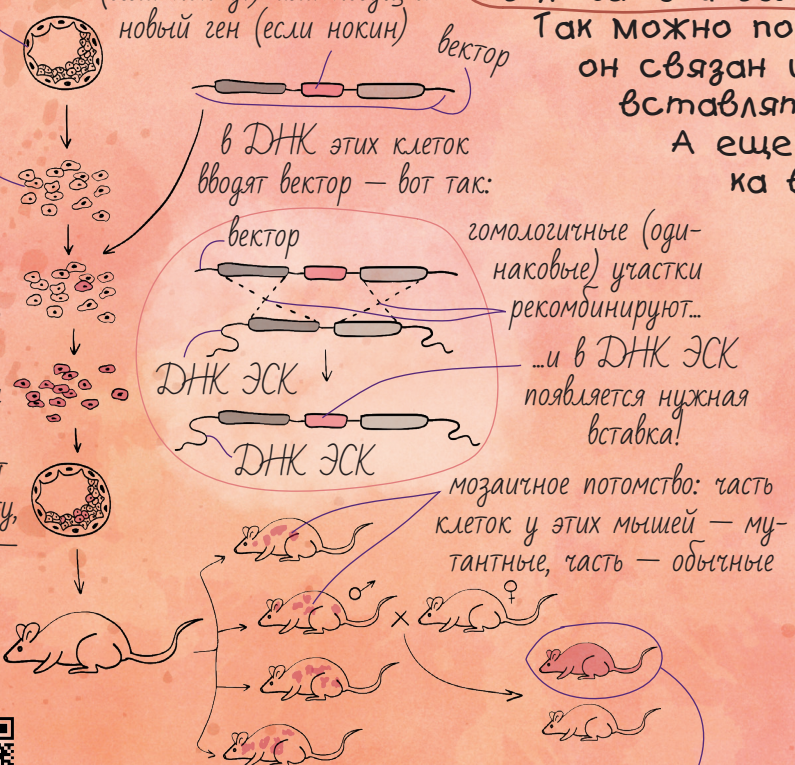 новый ген (если нокин)
вектор
Так можно по
он связан
вставлят
А еще
ка
в ДНК этих клеток
вводят вектор — вот так:
вектор
гомологичные (оди-
наковые) участки
рекомбинируют...
ДНК ЭСК
...и в ДНК ЭСК
появляется нужная
вставка!
ДНК ЭСК
мозаичное потомство: часть
клеток у этих мышей — му-
тантные, часть — обычные